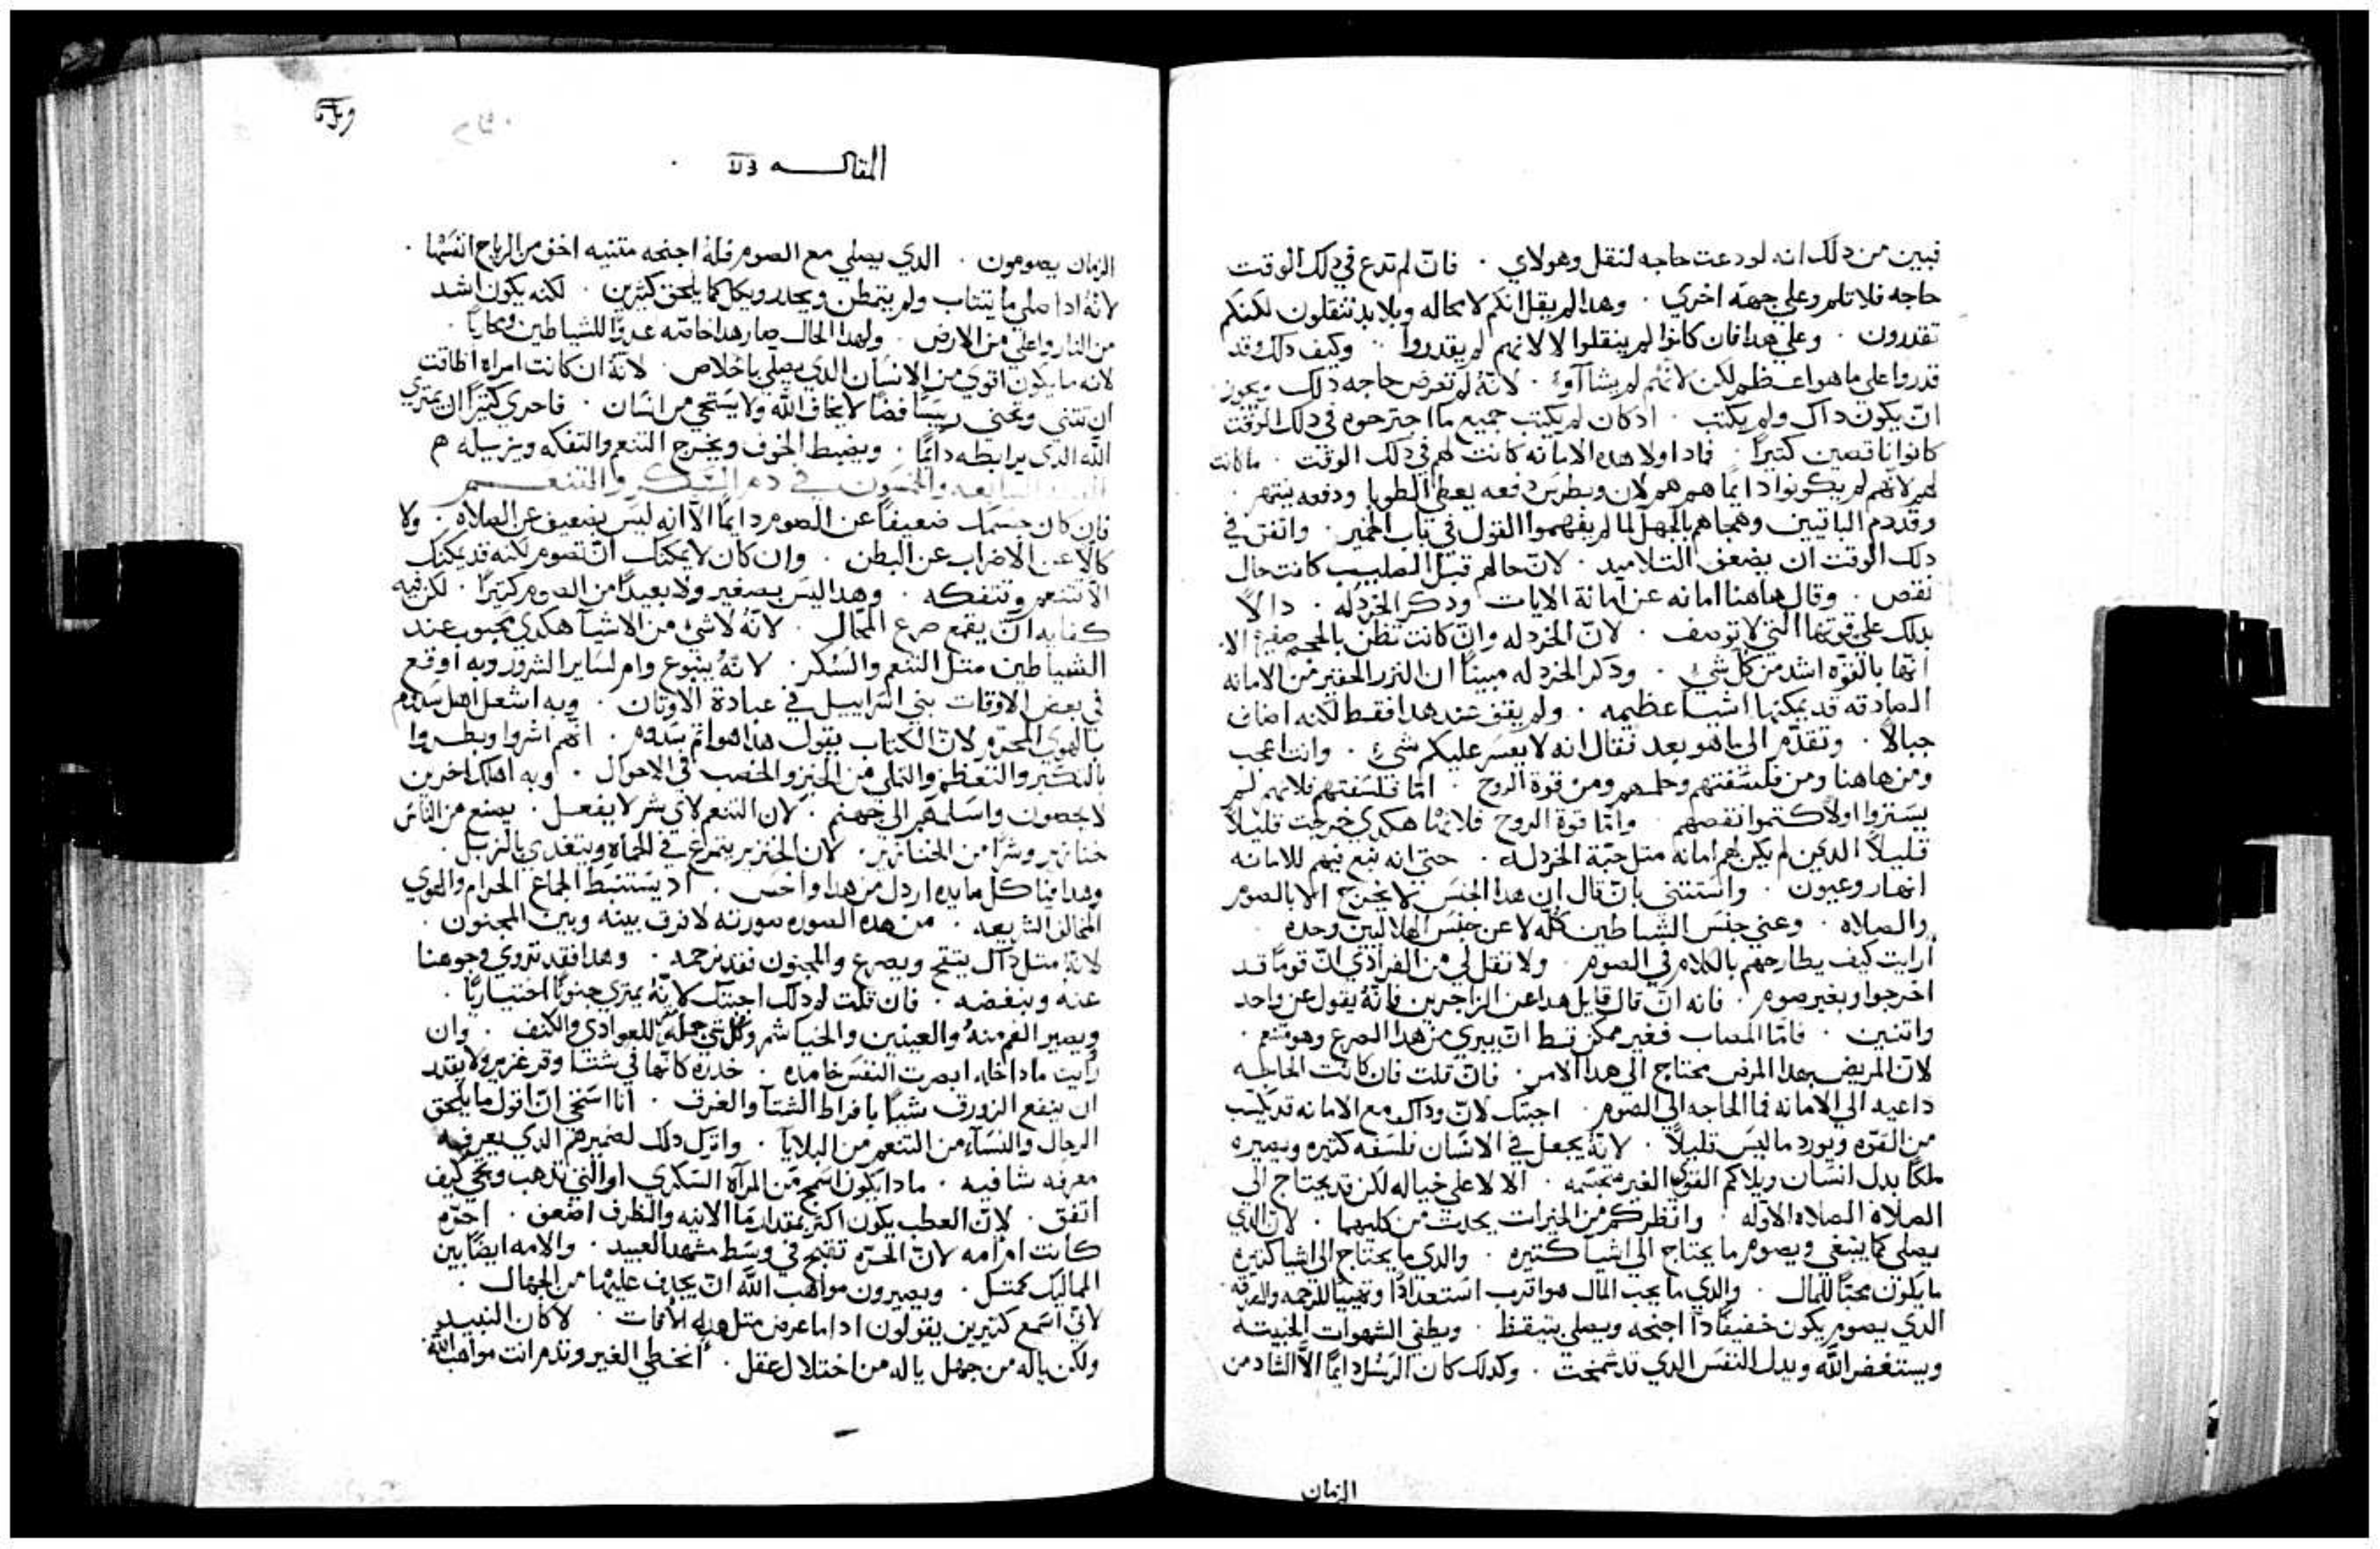 فبين من دلك انه لو دعت حاجه لنقل وهولاي . فان لم تدع في دلك الوقت
حاجه فلا تلم وعلي جهة اخري . وهدا لم يقل انكم لا محاله وبلا بد تنقلون لكنكم
تقدرون . وعلي هدا فان كانوا لم ينقلوا لا لانهم لم يقدروا . وكيف دلك وقد
قدروا علي ما هو اعظم لكن لانهم لم يشآآوا . لانه لم تعرض حاجه دلك ويجوز
ان يكون داك ولم يكتب . ادكان لم يكتب جميع ما اجترحوه في دلك الوقت
كانوا ناقصين كتيراً . فادا ولا هده الامانه كانت لهم في دلك الوقت . ما كانت
لهم لانهم لم يكونوا دايماً هم هم لان وبطرس دفعه يعطي الطوبا ودفعه ينتهر .
وقد دم الباقيين وهجاهم بالجهل لما لم يفهموا القول في باب الخمير . واتفق في
دلك الوقت ان يضعف التلاميد . لان حالهم قبل الصليب كانت حال
نقص . وقال هاهنا امانه عن امانة الايات ودكر الخردله . دالاً
بدلك علي قوتها التي لا توصف . لان الخردله وان كانت تظن بالحجم صغيره الا
انها بالقوه اشد من كل شي . ودكر الخردله مبيناً ان النزر الحقير من الامانه
الصادقه قد يمكنها اشيا عظيمه . ولم يقف عند هدا فقط لكنه اضاف
جبالاً . وتقدم الي ما هو بعد فقال انه لا يعسر عليكم شي . وانت اعجب
ومن هاهنا ومن فلسفتهم وحلمهم ومن قوة الروح . اما فلسفتهم فلانهم لم
يستروا ولا كتموا نقصهم . واما قوة الروح فلانها هكدي خرجت قليلاً
قليلاً الدين لم يكن لهم امانه متل حبة الخردله . حتي انه نبع فيهم للامانه
انهار وعيون . واستتني بان قال ان هدا الجنس لا يخرج الا بالصوم
والصلاه . وعني جنس الشياطين كله لا عن جنس الهلاليين وحده .
أرايت كيف يطارحهم بالكلام في الصوم . ولا تقل لي من الفرادي ان قوماً قد
اخرجوا وبغير صوم . فانه ان قال قايل هدا عن الزاجرين فانه يقول عن واحد
واتنين . فاما المصاب فغير ممكن قط ان يبري من هدا الصرع وهو متنعم .
لان المريض بهدا المرض محتاج الي هدا الامر . فان قلت فان كانت الحاجه
داعيه الي الامانه فما الحاجه الي الصوم . اجبتك لان وداك مع الامانه قد يكسب
من القوه ويورد ما ليس قليلاً . لانه يجعل في الانسان فلسفه كتيره ويصيره
ملكاً بدل انسان ويلاكم القوي الغير متجسمه . الا لا علي خياله لكن قد يحتاج الي
الصلاة الصلاه الاوله . وانظركم من الخيرات يحدت من كليهما . لان الدي
يصلي كما ينبغي ويصوم ما يحتاج الي اشيآ كتيره . والدي ما يحتاج الي اشيا كتيره
ما يكون محباً للمال . والدي ما يحب المال هو اقرب استعداداً وتهيياً للرحمه والصدقه
الدي يصوم يكون خفيفاً دا اجنحه ويصلي بتيقظ . ويطفي الشهوات الخبيته
ويستغفر الله ويدل النفس الدي قد شمخت . وكدلك كان الرسل دايماً الا الشاد من
الزمان
المقاله
الزمان يصومون . الدي يصلي مع الصوم فله اجنحه متنيه اخف من الرياح انفسها .
لانه ادا صلي ما يتتاب ولم يتمطن ويخدر ويكل كما يلحق كتيرين . لكنه يكون اشد
من النار واعلي من الارض . ولهدا الحال صار هدا خاصه عدوا للشياطين ومحارباً .
لانه ما يكون اقوي من الانسان الدي يصلي باخلاص . لانه ان كانت امراه اطاقت
ان تتني وتحني رييساً فضاً لا يخاف الله ولا يستحي من انسان . فاحري كتيراً ان يمتري
الله الدي يرابطه دايماً . ويضبط الجوف ويخرج التنعم والتفكه ويزيله هم
في دم السكر والتنعم
فان كان جسمك ضعيفاً عن الصوم دايماً الا انه ليس بضعيف عن الصلاه . ولا
كالاً عن الاضراب عن البطن . وان كان لا يمكنك ان تصوم لكنه قد يمكنك
الا تتنعم وتتفكه . وهدا ليس بصغير ولا بعيداً من الصوم كتيراً . لكن فيه
كفايه ان يقمع صرع المحال . لانه لا شي من الاشيآ هكدي محبوب عند
الشياطين متل التنعم والسكر . لانه ينبوع وام لساير الشرور وبه اوقع
في بعض الاوقات بني اسراييل في عبادة الاوتان . وبه اشعل اهل سدوم
بالهوي المحرم لان الكتاب يقول هدا هو اتم سدوم . انهم اشروا وبطروا
بالتكبر والتعظم والتملي من الخبز والخصب في الاحوال . وبه اهلك اخرين
لا يحصون واسلمهم الي جهنم . لان التنعم لاي شر لا يفعل . يصنع من الناس
خنازير وشراً من الخنازير . لان الخنزير يتمرغ في الحماه ويتغدي بالزبل .
وهدا فيا كل مايده اردل من هدا واخس . اد يستنبط الجماع الحرام والهوي
المخالف الشريعه . من هده الصوره صورته لا فرق بينه وبين المجنون .
لانه متل داك يتقح ويصرع والمجنون فقد نرحمه . وهدا فقد نزوي وجوهنا
عنه ونبغضه . فان قلت لم دلك اجبتك لانه يمتري جنوناً اختيارياً .
ويصير الفم منه والعينين والخياشم وكل شي جمله للعوادي والكنف . وان
رايت مادا خله ابصرت النفس خامده . خدره كانها في شتا وقر غزير ولا يقدر
ان ينفع الزورق شياً بافراط الشتآ والغرق . انا استحي ان اقول ما يلحق
الرجال والنسآء من التنعم من البلايا . واترك دلك لضميرهم الدي يعرفه
معرفه شافيه . مادا يكون اسمج من المرآه السكري او التي تدهب وتجي كيف
اتفق . لان العطب يكون اكتر بمقدار ما الانيه والظرف اضعف . احره
كانت ام امه لان الحره تقبح في وسط مشهد العبيد . والامه ايضاً بين
المماليك كمتل . ويصيرون مواهب الله ان يجدف عليها من الجهال .
لاني اسمع كتيرين يقولون ادا ما عرض متل هده الافات . لا كان النبيد
ولكن ياله من جهل ياله من اختلال عقل . أنخطي الغير وتدم انت مواهب الله